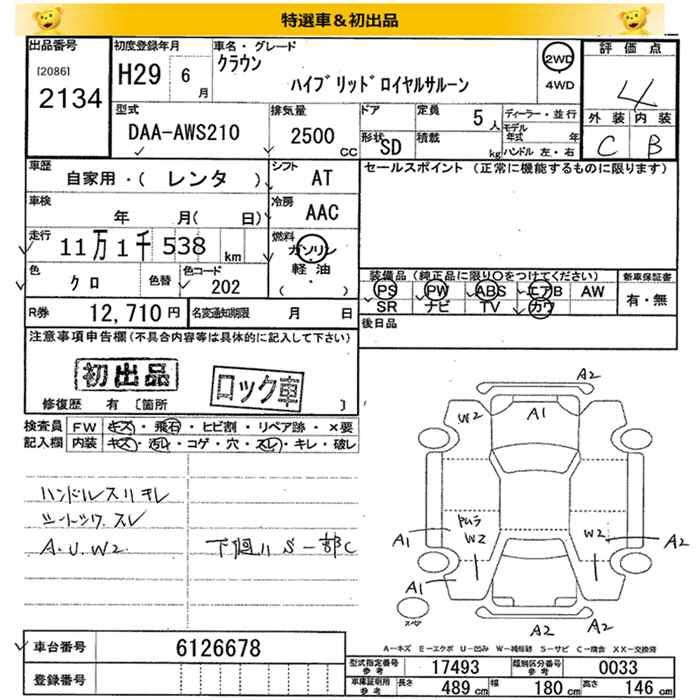 特選車＆初出品
出品番号
[2086]
2134
初度登録年月
H29 6月
車名・グレード
クラウン
ハイブリッドロイヤルサルーン
2WD
4WD
評価点
4
外装 内装
C B
型式
DAA-AWS210
排気量
2500 CC
ドア
形状 SD
定員 5人
積載 kg
ディーラー・並行
モデル年式 年
ハンドル 左・右
車歴
自家用・( レンタ )
シフト
AT
セールスポイント (正常に機能するものに限ります)
車検
年 月( 日)
冷房
AAC
走行
11万1千538 km
燃料
ガソリン
軽油
( ・ )
色
クロ
色替
色コード
202
装備品 (純正品に限り○をつけてください)
PS PW ABS エアB AW
SR ナビ TV カワ
新車保証書
有・無
R券 12,710円
名変通知期限 月 日
後日品
注意事項申告欄 (不具合内容等は具体的に記入して下さい)
初出品
ロック車
修復歴 有 〔箇所 〕
検査員 FW キズ・飛石・ヒビ割・リペア跡・×要
記入欄 内装 キズ・汚れ・コゲ・穴・スレ・キレ・破レ
ハンドルスリキレ
シートシワ、スレ
A.U.W2
下回りS一部C
A2
A1
UF2
W2
W2
A1
A2
A1
A2
A2
スペア
車台番号 6126678
登録番号
A－キズ E－エクボ U－凹み W－補修跡 S－サビ C－腐食 XX－交換済
型式指定番号 参考 17493
類別区分番号 参考 0033
車庫証明用 参考 長さ 489 cm 幅 180 cm 高さ 146 cm